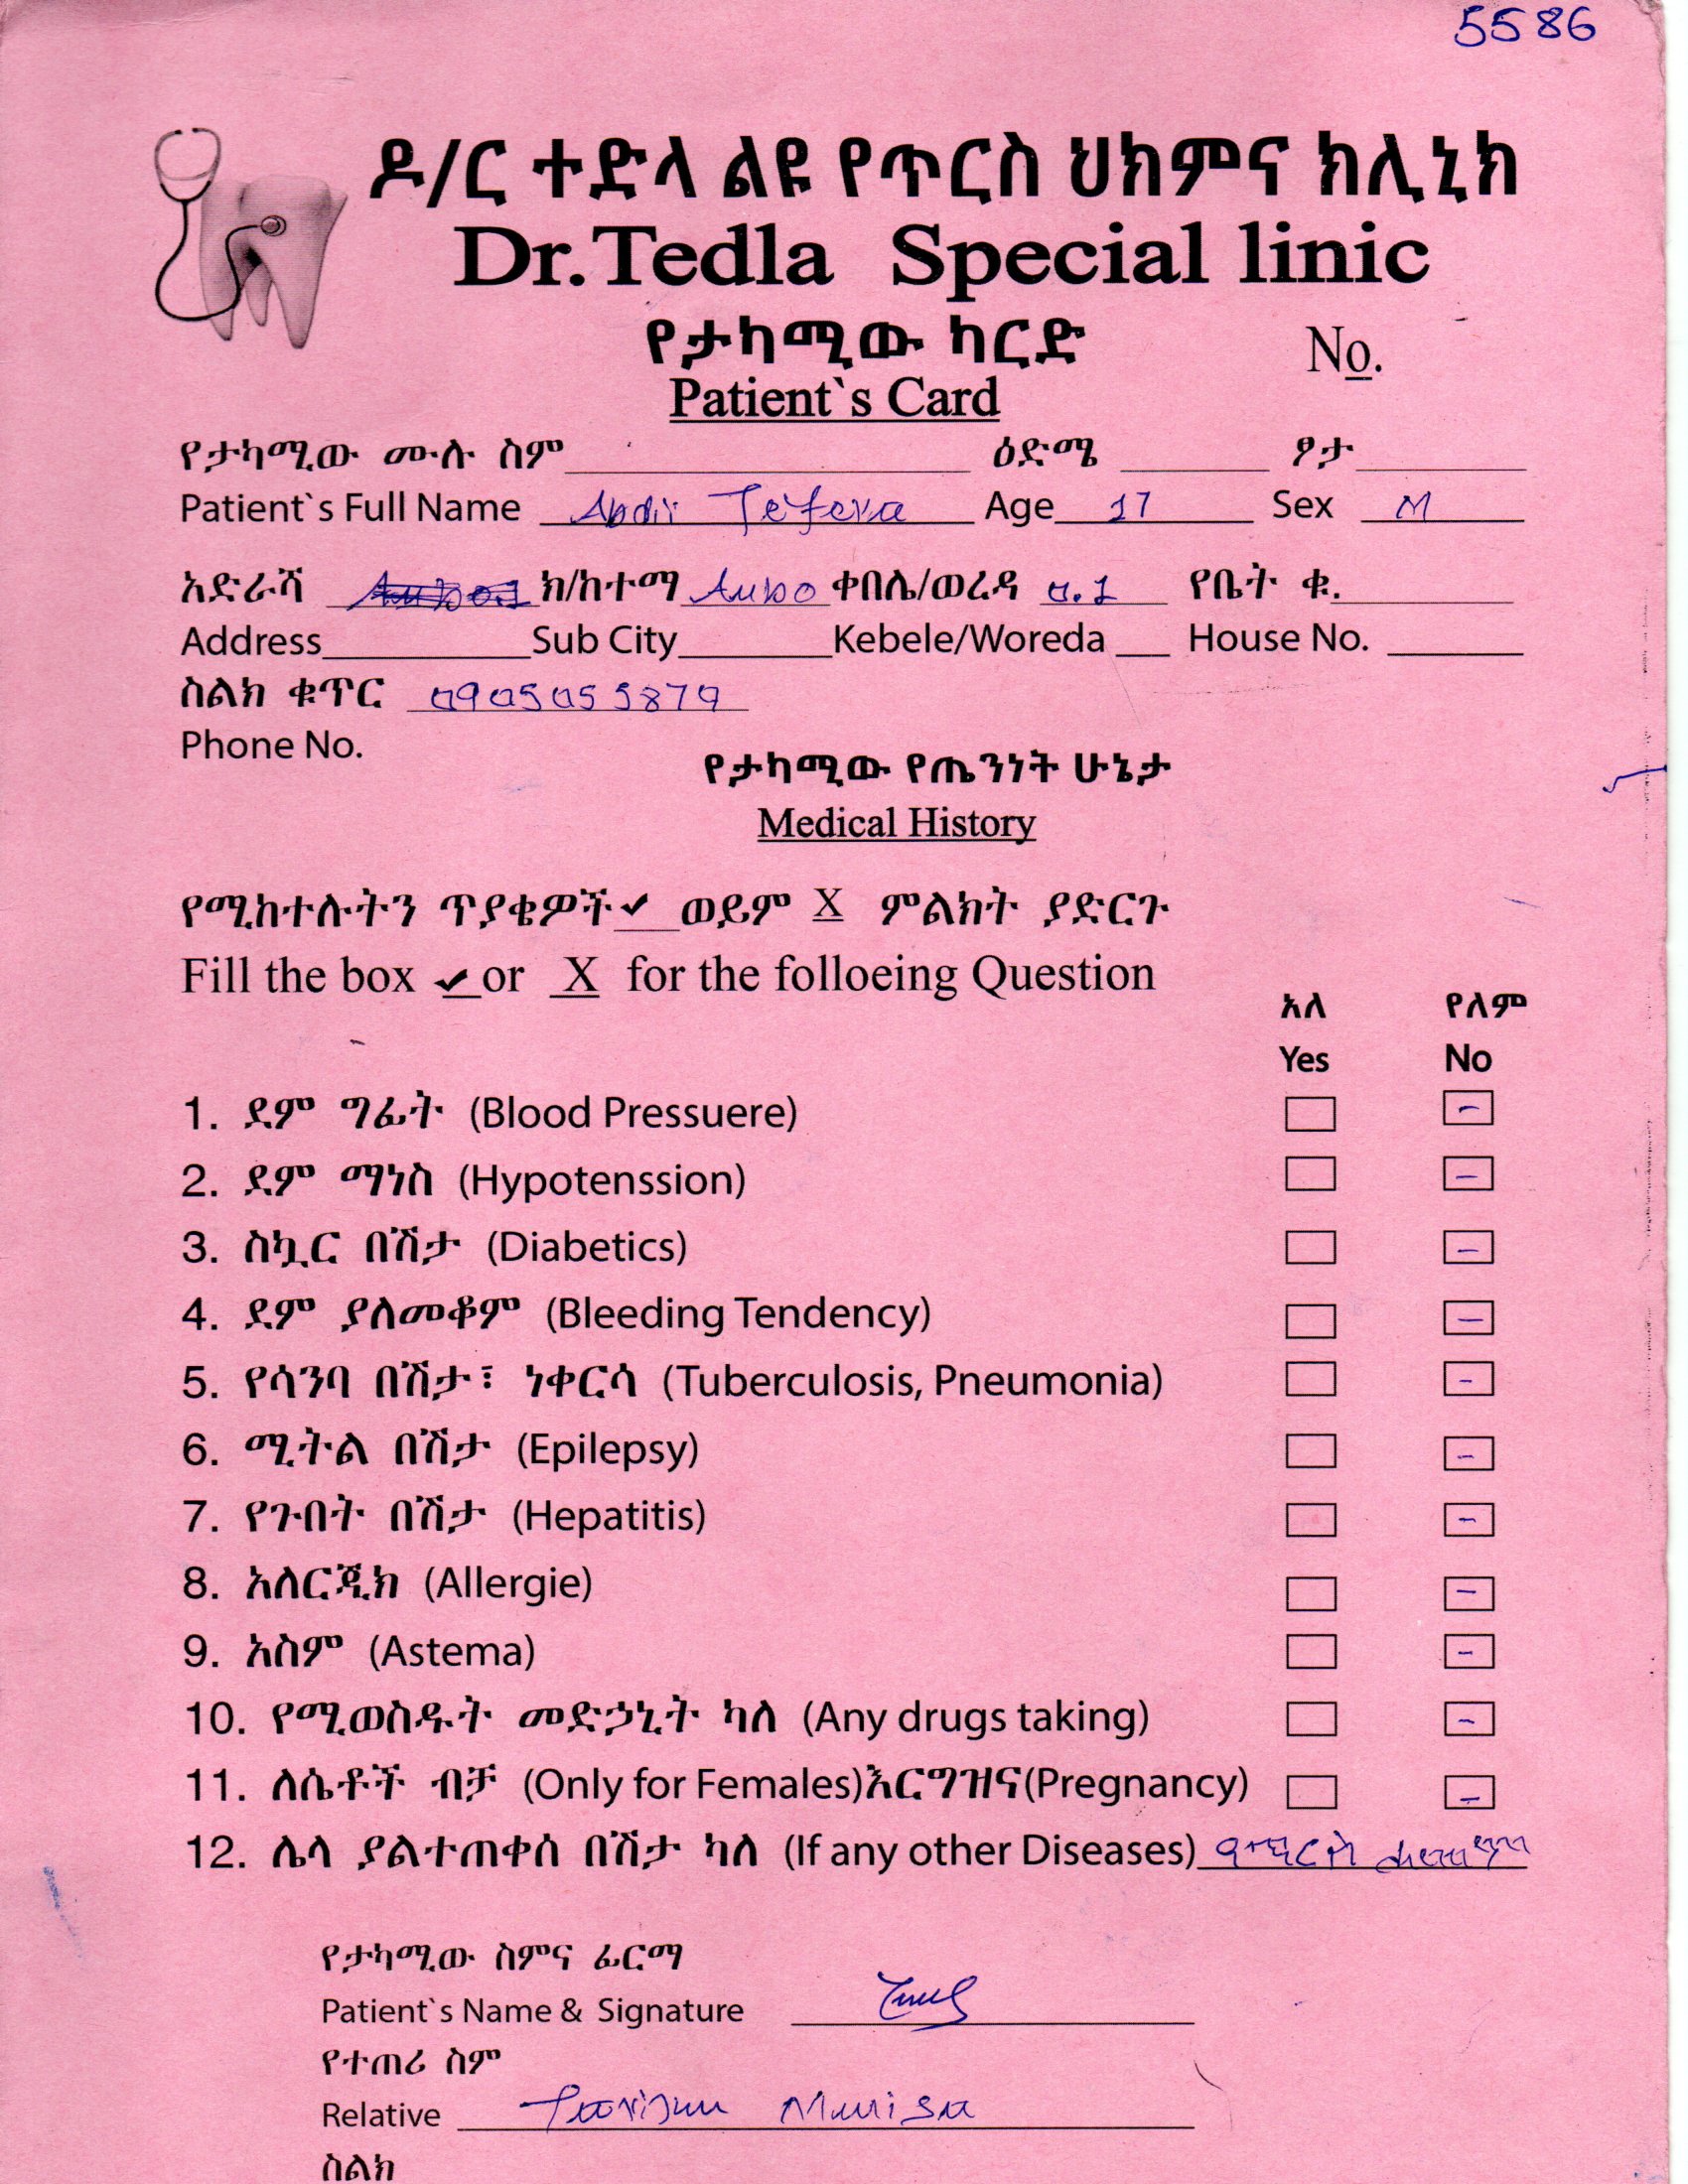 5586
ዶ/ር ተድላ ልዩ የጥርስ ህክምና ክሊኒክ
Dr.Tedla Special linic
የታካሚው ካርድ
No.
Patient`s Card
የታካሚው ሙሉ ስም ዕድሜ ፆታ
Patient`s Full Name Abdii Tefera Age 17 Sex M
አድራሻ ክ/ከተማ Ambo ቀበሌ/ወረዳ 0.1 የቤት ቁ.
Address Sub City Kebele/Woreda House No.
ስልክ ቁጥር 0905055879
Phone No.
የታካሚው የጤንነት ሁኔታ
Medical History
የሚከተሉትን ጥያቄዎች ✔ ወይም X ምልክት ያድርጉ
Fill the box ✔ or X for the folloeing Question
አለ የለም
Yes No
1. ደም ግፊት (Blood Pressuere) -
2. ደም ማነስ (Hypotenssion) -
3. ስኳር በሽታ (Diabetics) -
4. ደም ያለመቆም (Bleeding Tendency) -
5. የሳንባ በሽታ፣ ነቀርሳ (Tuberculosis, Pneumonia) -
6. ሚትል በሽታ (Epilepsy) -
7. የጉበት በሽታ (Hepatitis) -
8. አለርጂክ (Allergie) -
9. አስም (Astema) -
10. የሚወስዱት መድኃኒት ካለ (Any drugs taking) -
11. ለሴቶች ብቻ (Only for Females)እርግዝና(Pregnancy) -
12. ሌላ ያልተጠቀሰ በሽታ ካለ (If any other Diseases)
የታካሚው ስምና ፊርማ
Patient`s Name & Signature
የተጠሪ ስም
Relative
ስልክ